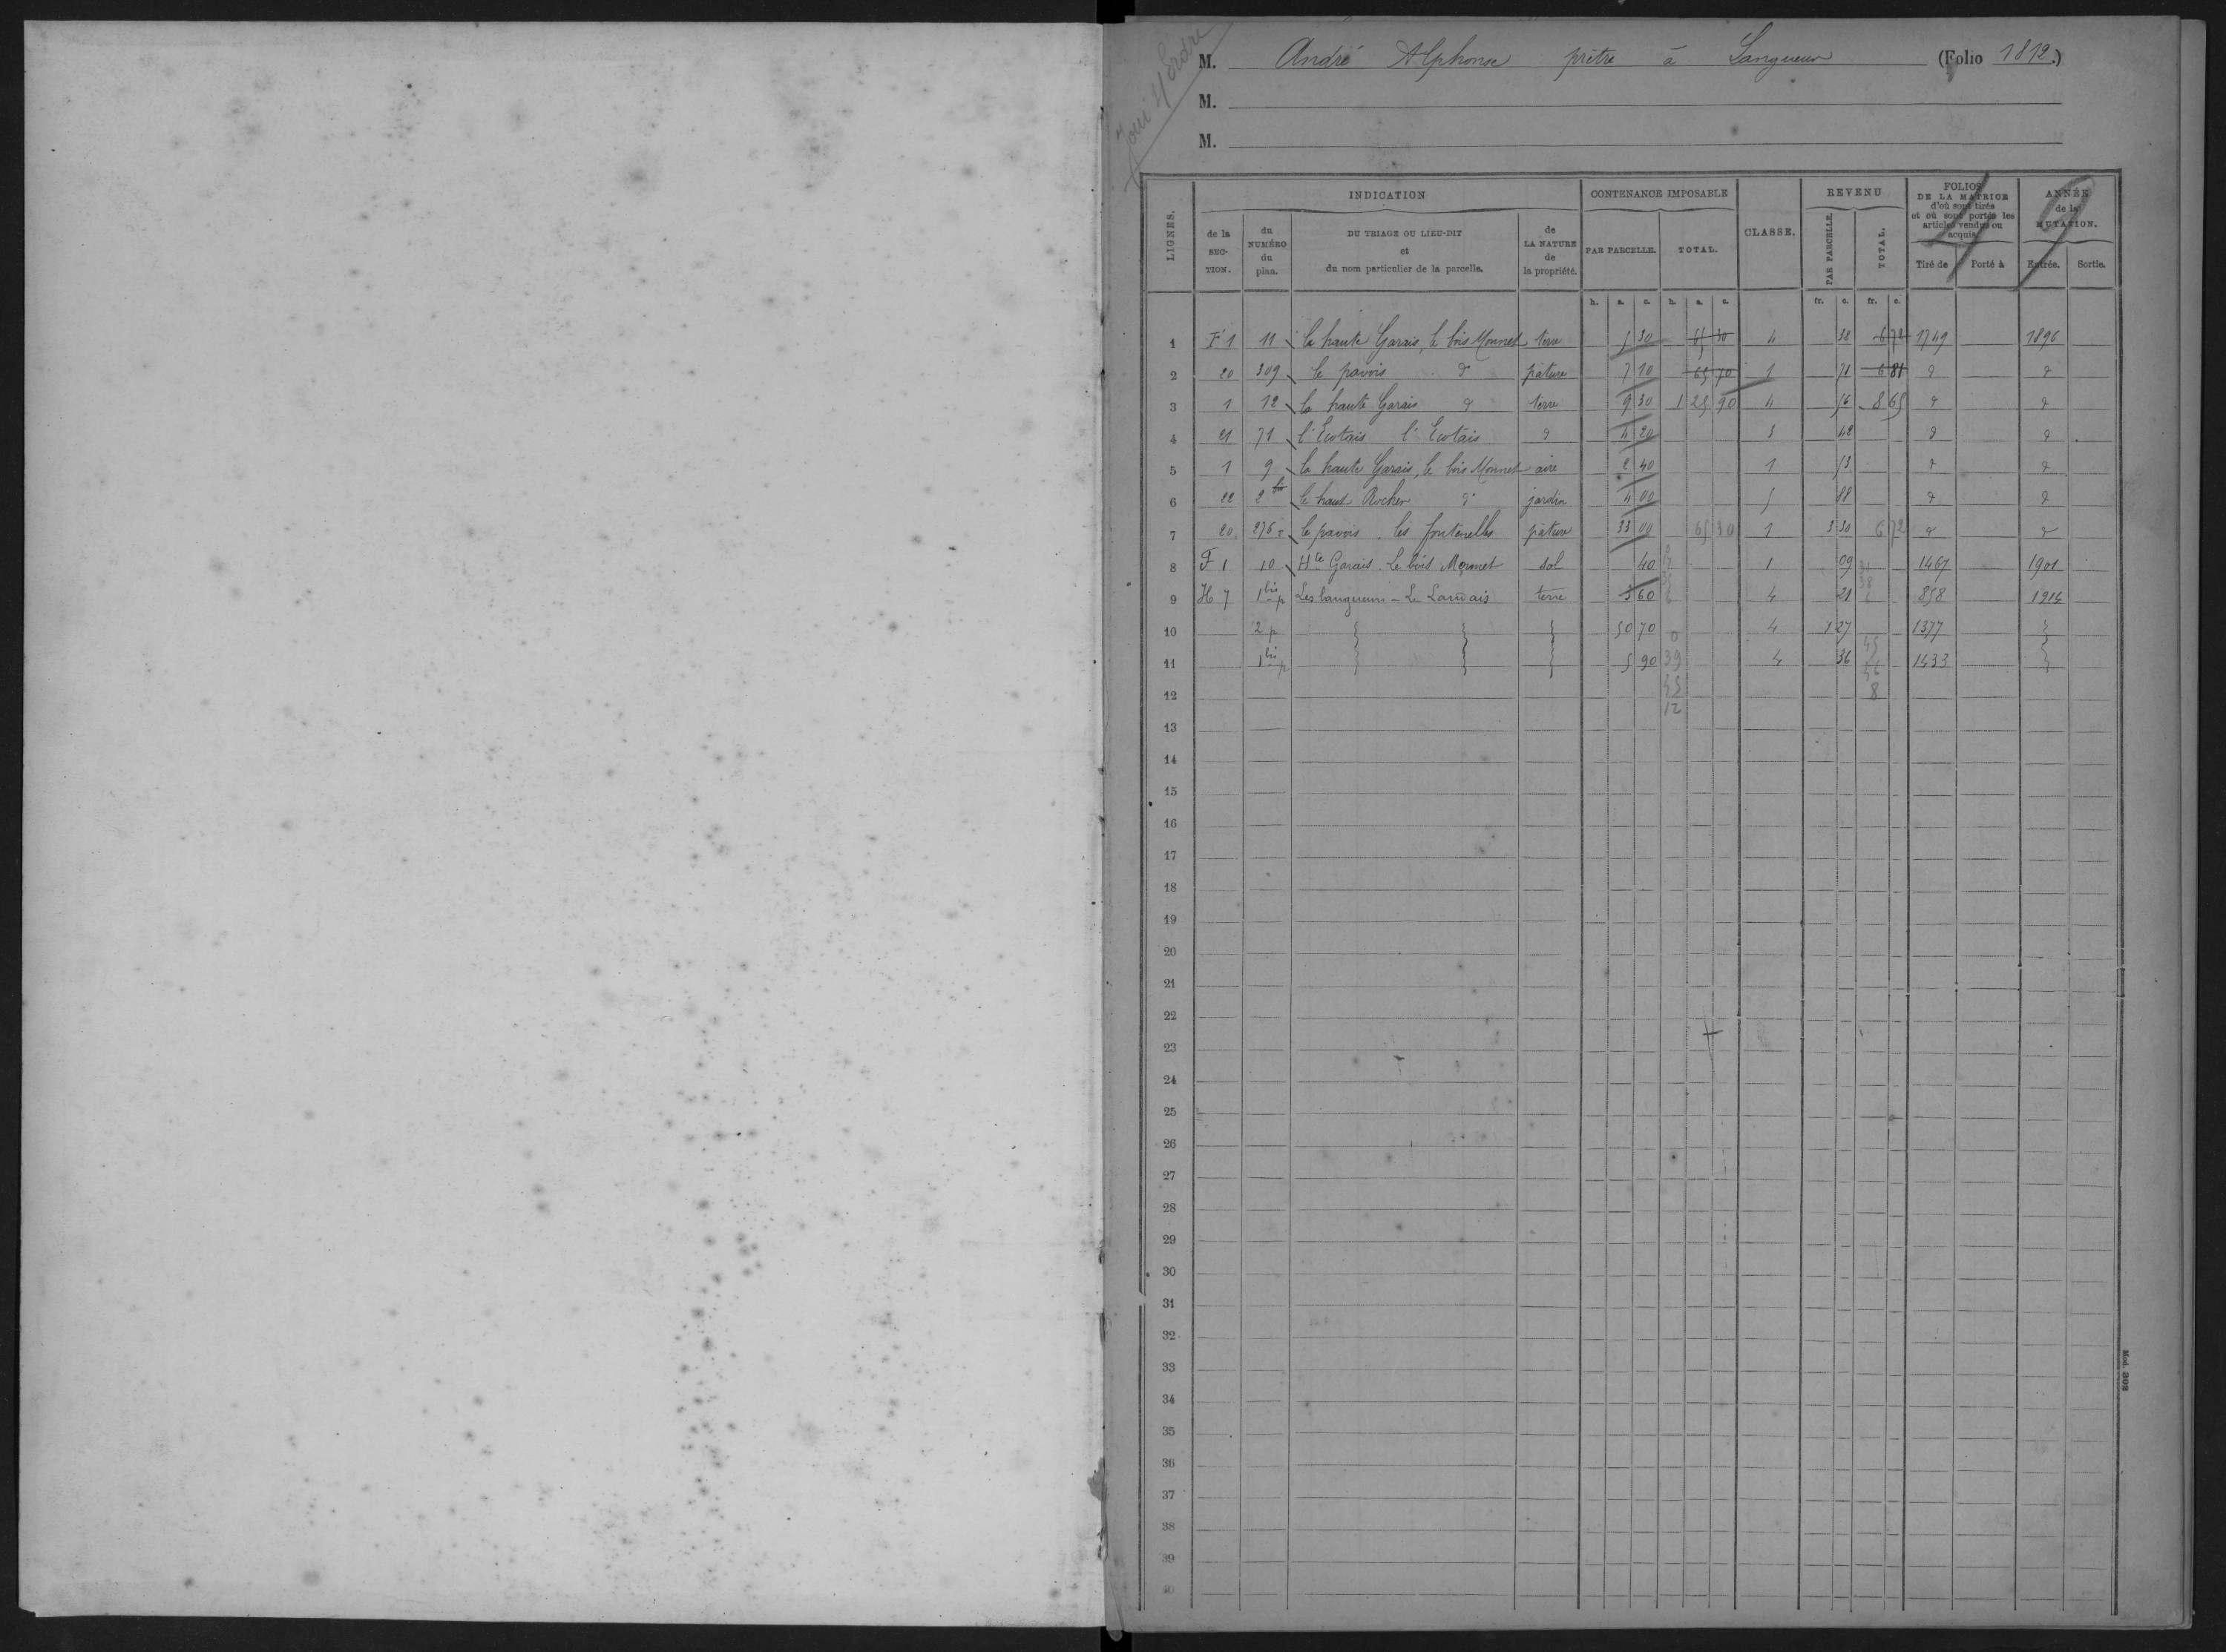 M. André Alphonse prêtre à Langueur (Folio 1812.)
M.
M.
LIGNES. INDICATION CONTENANCE IMPOSABLE CLASSE. REVENU FOLIOS DE LA MATRICE d'où sont tirés et où sont portés les articles vendus ou acquis. ANNÉE de la MUTATION.
49
de la SECTION. du NUMÉRO du plan. DU TRIAGE OU LIEU-DIT et du nom particulier de la parcelle. de LA NATURE de la propriété. PAR PARCELLE. TOTAL. PAR PARCELLE. TOTAL. Tiré de Porté à Entrée. Sortie.
h. a. c. h. a. c. fr. c. fr. c.
1 F 1 11 la haute Garais, le bois Monnet terre 5 30 65 30 4 38 6 72 1749 1896
2 20 309 le pavois d° pâture 7 10 65 70 1 71 6 81 d d
3 1 12 la haute Garais d terre 9 30 1 25 90 4 56 8 65 d d
4 21 71 l'Ecotais l'Ecotais d 4 20 3 42 d d
5 1 9 la haute Garais, le bois Monnet aire 2 40 1 53 d d
6 22 2 bis le haut Rocher d° jardin 4 00 5 88 d d
7 20 276 le pavois les fontenelles pâture 33 00 65 30 1 3 30 6 72 d d
8 F 1 10 Hte Garais Le bois Monnet sol 40 1 09 1467 1901
9 H 7 1 bis p Les langueurs - Le Landais terre 3 60 4 21 858 1914
10 2 p 50 70 4 1 27 1377
11 1 bis p 5 90 39 4 36 1433
12 8
12
13
14
15
16
17
18
19
20
21
22
23
24
25
26
27
28
29
30
31
32
33
34
35
36
37
38
39
40
Mod. 302